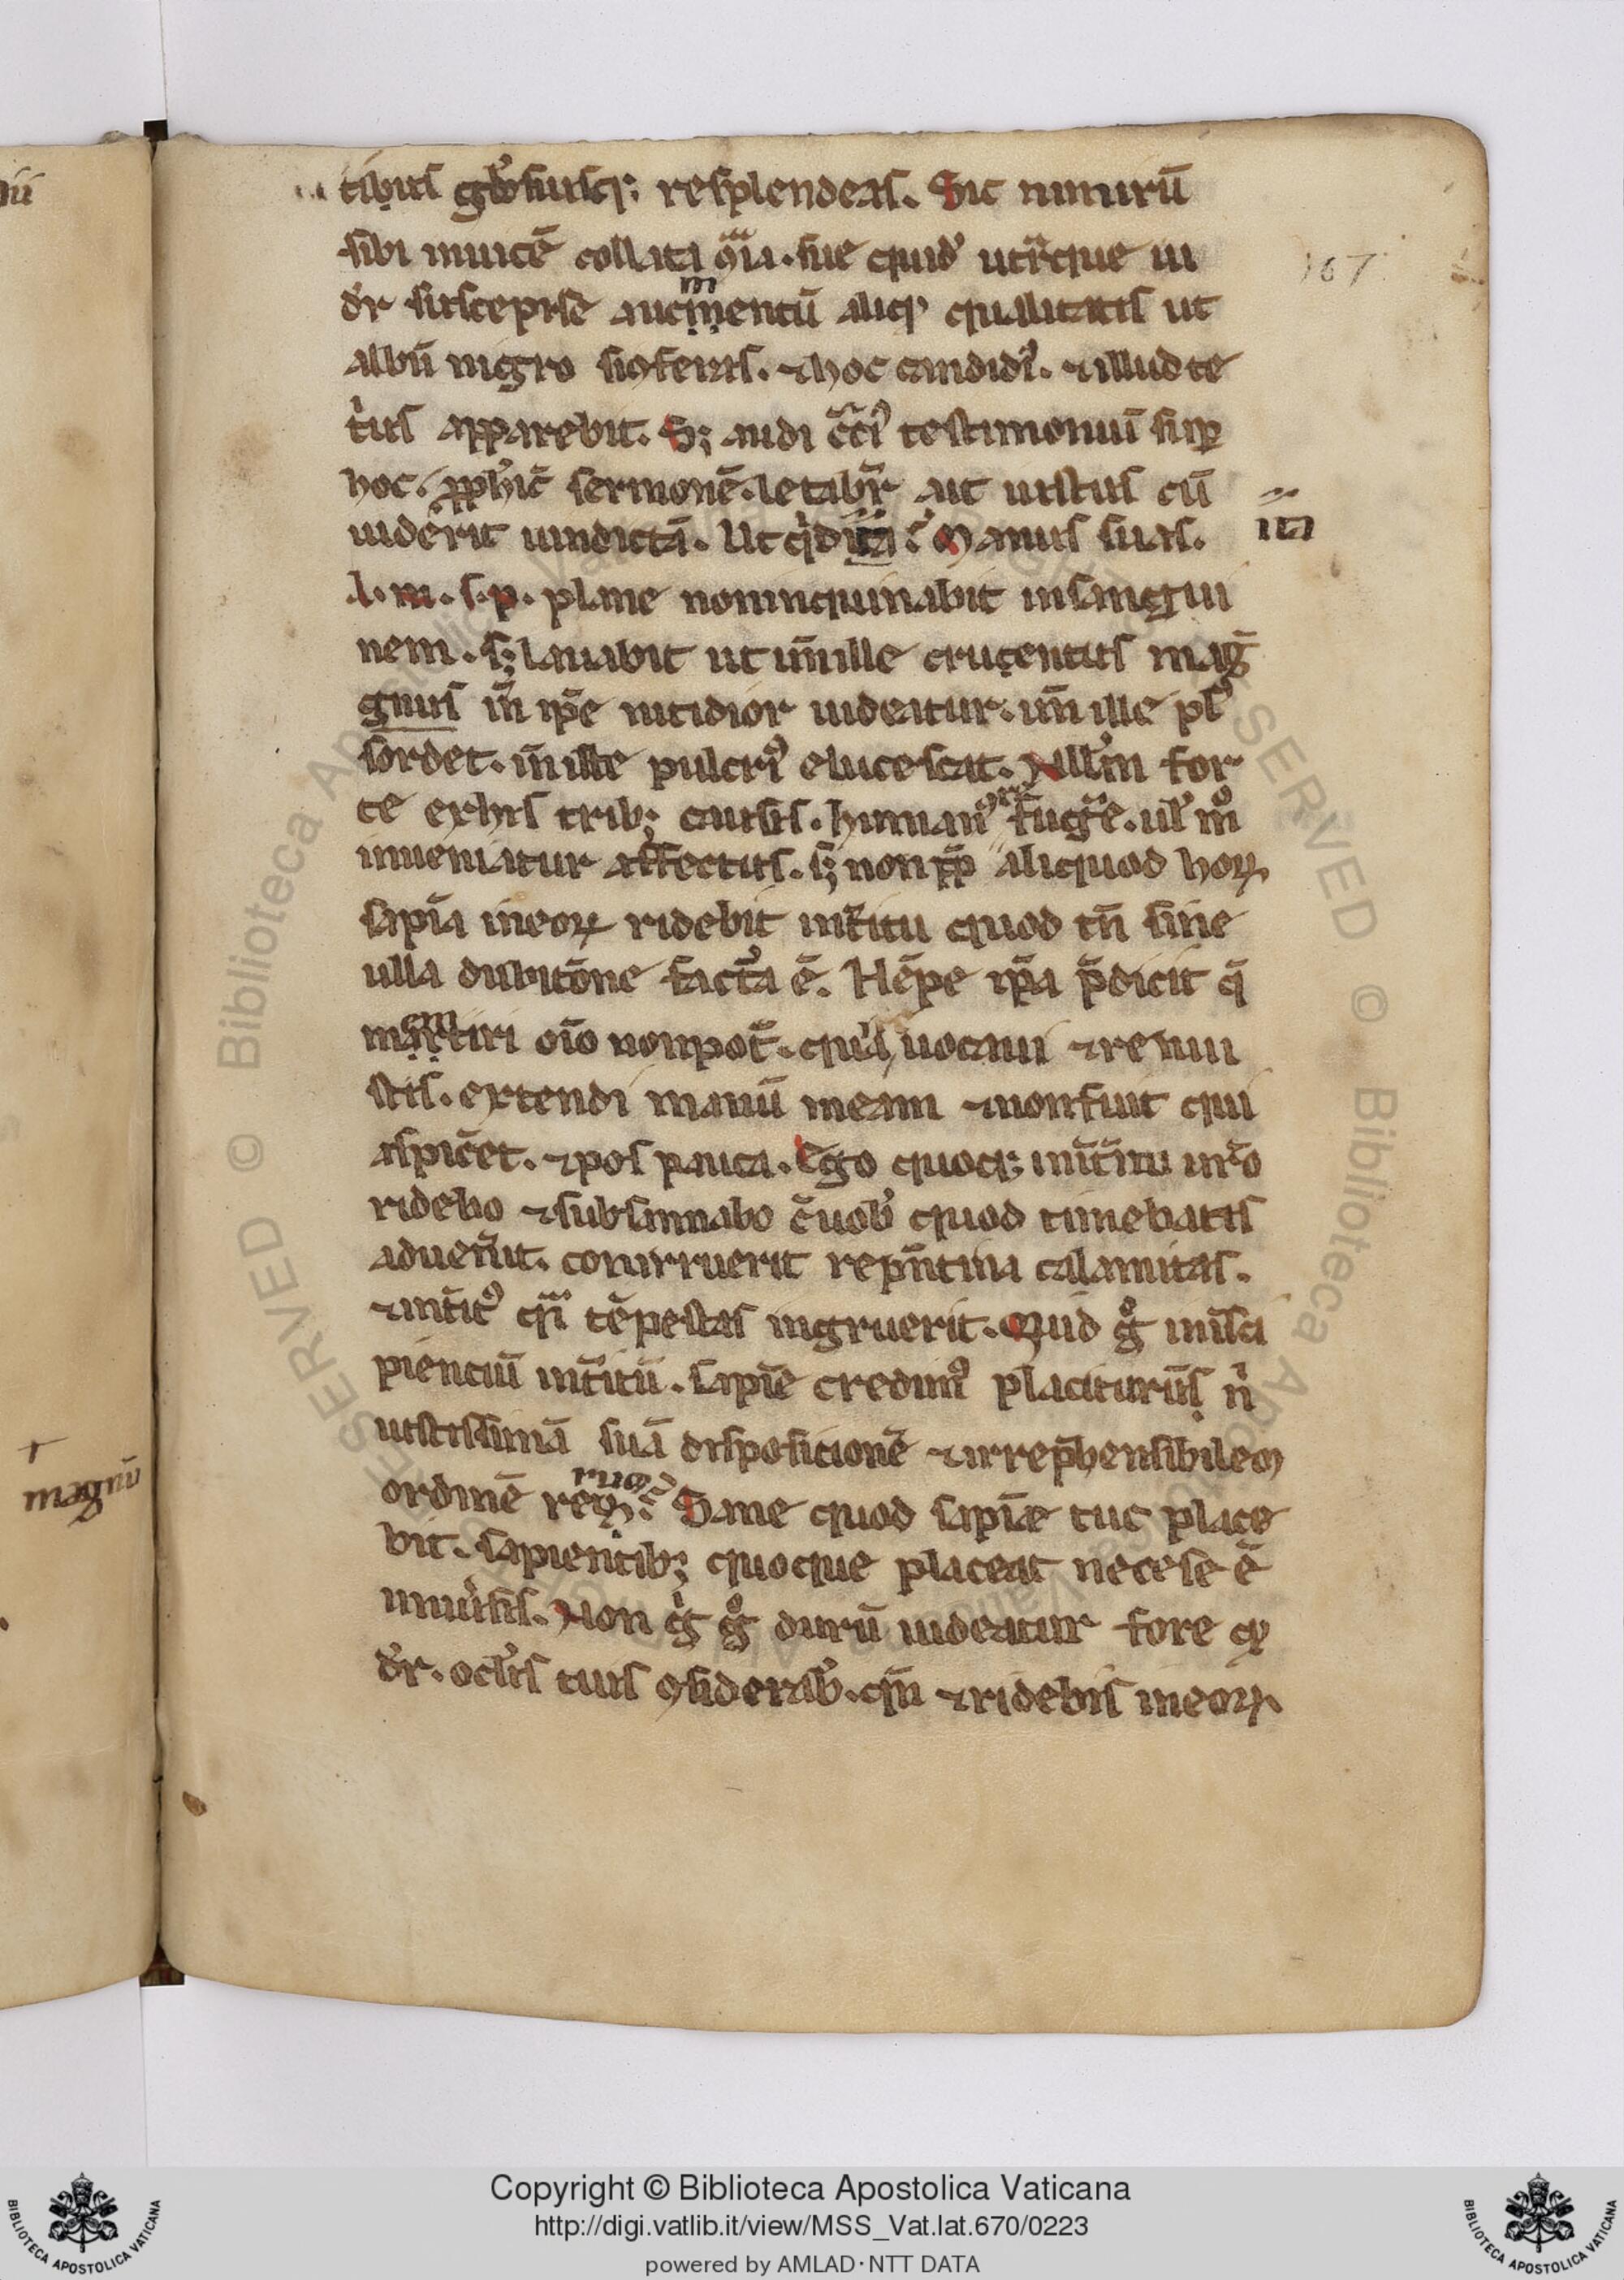 tib᷒ gl'osiusq; resplendeas. Sic nimirū
sibi inuicē collata ꝯtͣia. sue quid' ut'que ui
dr̄ suscepise aucmentū alicꝰ qualitatis ut
albū nigro si ꝯferas. ⁊hoc candidiꝰ. ⁊illud te
t'ius apparebit. S; audi testimoniū sup
hoc. ꝓph'ic̄ sermonē. letabr̄ ait iustus cū
uiderit uindictā. Ut qd ita
ita
.'? Manus suas.
.l. m. s. p. plane non inquinabit in sangui
nem. s; lauabit ut inille cruentus maḡ
gnus in̄ ip̄e nitidior uideatur. un̄ ille plꝰ
sordet. in̄ ille pulcriꝰ elucescat. Null'm for
te exhis trib; causis. humanꝰ fug̃e. ul' mͦ
inueniatur affectus. s; non ꝓp aliquod hoꝝ
sapīa in eoꝝ ridebit int'itu quod tn̄ sine
ulla dubitōne fact'a ē. Nēpe ip̄a p̄dicit q̄
em
martiri oīo non pot̄. quia uocaui ⁊renui
stis. extendi manū meam ⁊non fuit qui
aspic̄et. ⁊pos pauca. Ego quoq; int̄itu ur̄o
ridebo ⁊subsannabo c̄ uob' quod timebatis
aduen̄it. con irruerit repn̄tina calamitas.
⁊int̄itꝰ qͣi tēpestas ingruerit. Quid gͦ in īsa
pienciū int̄itū. sapīe credimꝰ placiturūs nͥ
iustissimā suā disposicionē ⁊irrep̄hensibilem
ordinē reꝝ.? Sane quod sapīe tuc place
bit. sapientib; quoque placeat necese ē
uniu'sis. Non gͥ gͦ durū uideatur fore qꝫ
dr̄. ocl'is tuis ꝯsiderab'. qm̄ ⁊ridebis in eoꝝ
167
magnū
Copyright © Biblioteca Apostolica Vaticana
http://digi.vatlib.it/view/MSS_Vat.lat.670/0223
powered by AMLAD·NTT DATA
BIBLIOTECA APOSTOLICA VATICANA
BIBLIOTECA APOSTOLICA VATICANA